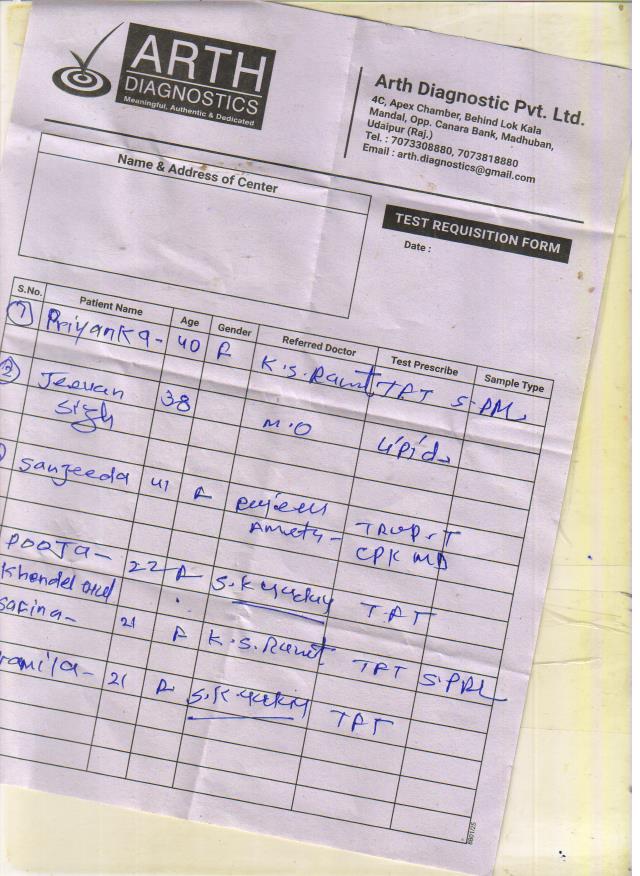 ARTH
DIAGNOSTICS
Meaningful, Authentic & Dedicated
Arth Diagnostic Pvt. Ltd.
4C, Apex Chamber, Behind Lok Kala
Mandal, Opp. Canara Bank, Madhuban,
Udaipur (Raj.)
Tel. : 7073308880, 7073818880
Email : arth.diagnostics@gmail.com
Name & Address of Center
TEST REQUISITION FORM
Date :
S.No. Patient Name Age Gender Referred Doctor Test Prescribe Sample Type
1 Priyanka - 40 F K.S. TFT S.PRL
2 Jeevan 38 M.O Lipid
Singh
Sanjeeda 41 F
CPK MB
Pooja - 22 F S.K TFT
Sarina - 21 F K.S. TFT S.PRL
ramila - 21 F S.K TFT